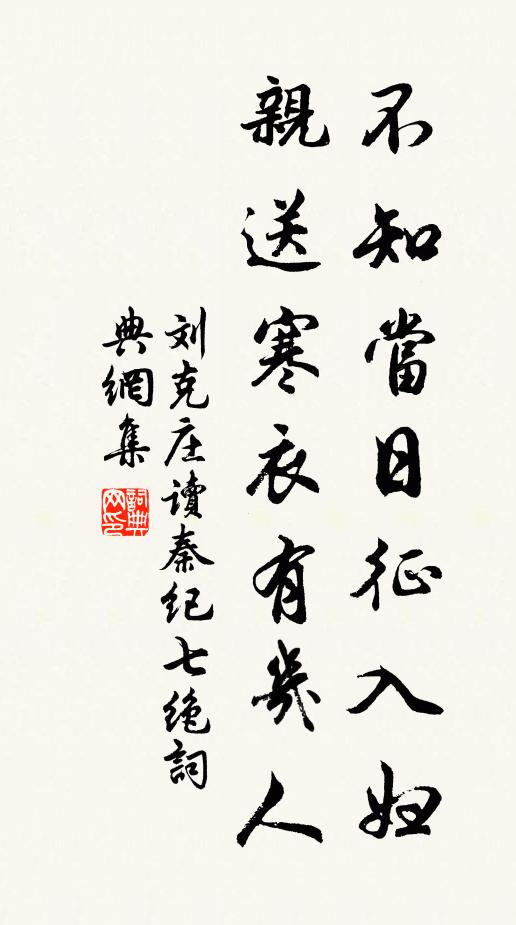 不知當日征入妇
親送寒衣有幾人
刘克庄讀秦纪七绝詞
典網集
詞典
网印